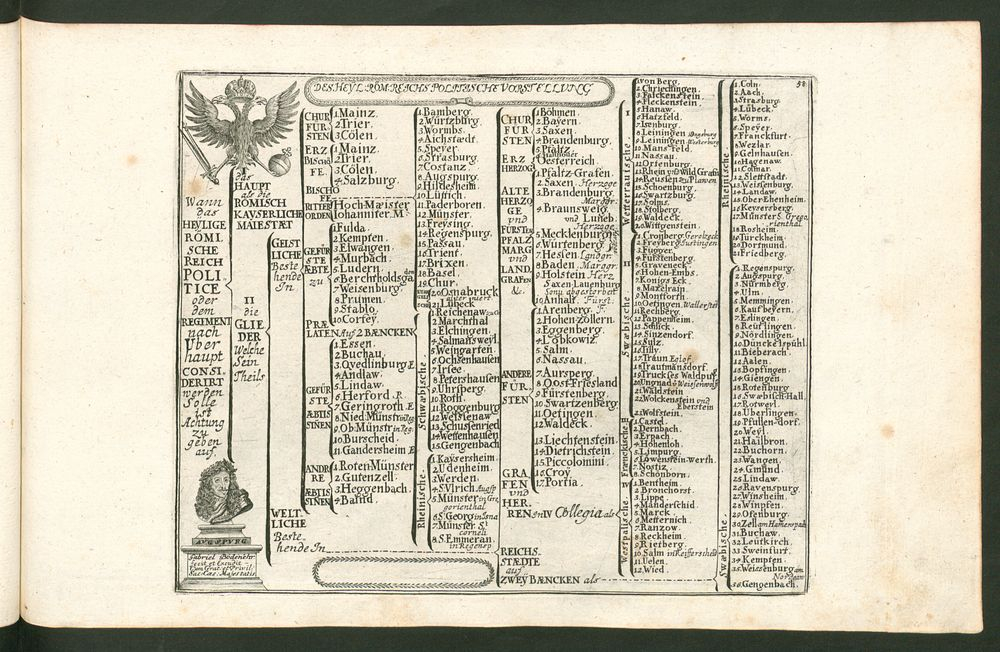 58
DES HEYL. RÖM. REICHS POLITISCHE VORSTELLUNG
Wann
das
HEYLIGE
RÖMI
SCHE
REICH
POLI
TICE
oder
dem
REGIMENT
nach
Über
haupt
CONSI
DERIRT
werden
Solle
ist
Achtung
zu
geben
auf.
I
das
HAUPT
als die
RÖMISCH
KAYSERLICHE
MAIESTÆT
II
die
GLIE
DER
Welche
Sein
Theils
GEIST
LICHE
Beste
hende
In
WELT
LICHE
Beste
hende In
CHUR
FÜR
STEN
1. Mainz.
2. Trier.
3. Cölen.
ERZ
BISCHÖ
FE.
1. Mainz.
2. Trier.
3. Cölen.
4. Salzburg.
BISCHÖ
FE
RITTER
ORDEN
HochMæister
Iohanniter. M.
GEFÜR
STE
ÆBTE
zu
1. Fulda.
2. Kempfen.
3. Elwangen.
4. Murbach.
5. Ludern.
6. Berchtholdsgaden
7. Weisenburg.
8. Prumen.
9. Stablo.
10. Corfey.
PRÆ
LATEN Auf 2 BÆNCKEN
GEFÜR
STE
ÆBTIS
SIÑEN
1. Essen.
2. Buchau.
3. Qvedlinburg E
4. Andlaw.
5. Lindaw.
6. Herford. R.
7. Geringroth. E
8. Nied. Münstr in Reg.
9. Ob. Münstr in Reg.
10. Burscheid.
11. Gandersheim E
ANDE
RE
ÆBTIS
SINNEN
1. RotenMünster
2. Gutenzell.
3. Heggenbach.
4. Baind.
1. Bamberg.
2. Würtzburg.
3. Wormbs.
4. Aichstædt.
5. Speyer.
6. Strasburg.
7. Costanz.
8. Augspurg.
9. Hildesheim.
10. Lüttich.
11. Paderboren.
12. Münster.
13. Freysing.
14. Regenspurg.
15. Passau.
16. Trient.
17. Brixen.
18. Basel.
19. Chur.
20. Osnabruck
21. Lübeck
Schwæbische.
1. Reichenaw
2. Marchthal
3. Elchingen.
4. Salmansweyl.
5. Weingarten
6. Ochsenhausen
7. Irsee.
8. Petershausen
9. Uhrsperg.
10. Roth.
11. Roggenburg
12. Weisenaw.
13. Schusenried
14. Wettenhausen
15. Gengenbach.
Rheinische.
1. Kaysersheim.
2. Udenheim.
3. Werden.
4. S. Ulrich Augsp
5. Münster in Gre
gorienthal
6. S. Georg in Isna
7. Münster S.
Corneli
8. S. Emmeran.
in Regensp
CHUR
FÜR
STEN
1. Böhmen.
2. Bayern.
3. Saxen.
4. Brandenburg.
5. Pfaltz.
ERZ
HERZOG
Oesterreich.
ALTE
HERZO
GE
vnd
FÜRSTEN
PFALZ
MARG
vnd
LAND.
GRAFEN
&.
1. Pfaltz-Grafen.
2. Saxen. Herzoge
3. Brandenburg.
Margar.
4. Braunsweig
vnd Luneb.
Herzoge.
5. Mecklenburg
6. Würtenberg
7. Hessen Landgr.
8. Baden. Marggr.
9. Holstein. Herz
Saxen-Lauenburg
sonst abgestorben
10. Anhalt. Fürst.
ANDERE
FÜR.
STEN
1. Arenberg. f.
2. Hohen-Zollern.
3. Eggenberg.
4. Lobkowiz
5. Salm.
6. Nassau.
7. Aursperg.
8. Oost-Friesland
9. Fürstenberg.
10. Swartzenberg
11. Oetingen.
12. Waldeck.
13. Liechtenstein.
14. Dietrichstein.
15. Piccolomini.
16. Croy
17. Portia.
GRA
FEN
vnd
HER.
REN In IV Collegia als
REICHS.
STÆDTE
auf
ZWEY BÆNCKEN als
I
Wetterauische.
1. von Berg.
2. Chriechingen.
3. Falckenstein.
4. Fleckenstein.
5. Hanaw.
6. Hatzfeld.
7. Isenburg.
8. Leiningen Dagsburg
9. Leiningen Westerburg
10. Mansfeld.
11. Nassau.
12. Ortenburg.
13. Rhein v̈n Wild Grafn
14. Reussen zu Plawen
15. Schoenburg.
16. Swartzburg.
17. Solms.
18. Stolberg.
19. Waldeck.
20. Witgenstein.
II
Swæbische
1. Cronberg Geroltzeck
2. Freyberg Justingen
3. Fugger.
4. Fürstenberg.
5. Graveneck
6. Hohen-Embs.
7. Konigs Eck.
8. Maxelrain.
9. Montforth
10. Oetingen. Wallerstein
11. Rechberg.
12. Pappenheim.
13. Schlick.
14. Sinzendorf.
15. Sulz.
16. Tilly.
17. Traun
18. Trautmansdorf.
19. Truckses Waldpurg
20. Ungnad v. Weisenwolf
21. Waldstein
22. Wolckenstein vnd
Eberstein
21. Wolfstein.
Frænckische III
1. Castel.
2. Dernbach.
3. Erpach.
4. Hohenloh.
5. Limpurg.
6. Löwenstein-werth.
7. Nostiz.
8. Schönborn.
IV
Westpalische.
1. Bentheim.
2. Bronchorst.
3. Lippe.
4. Manderschid.
5. Marck.
6. Metternich.
7. Ranzow.
8. Reckheim.
9. Rietberg.
10. Salm in Reifferscheid
11. Uelen.
12. Wied.
Rheinische
1. Coln.
2. Aach.
3. Strasburg.
4. Lübeck.
5. Worms.
6. Speyer.
7. Franckfurt.
8. Wezlar.
9. Gelnhausen.
10. Hagenaw.
11. Colmar.
12. Slettstadt.
13. Weissenburg.
14. Landaw.
15. Ober-Ehenheim.
16. Keysersberg.
17. Münster S. Grego
rienthal
18. Rosheim.
19. Türckheim.
20. Dortmund.
21. Friedberg.
Swæbische.
1. Regenspurg.
2. Augspurg.
3. Nürmberg.
4. Ulm.
5. Memmingen.
6. Kaufbeyern.
7. Eslingen.
8. Reutlingen.
9. Nördlingen.
10. Dünckelspühl.
11. Bieberach.
12. Aalen.
13. Bopfingen.
14. Giengen.
15. Rotenburg
16. Swæbisch-Hall.
17. Rotweyl.
18. Uberlingen.
19. Pfullen-dorf.
20. Weyl.
21. Hailbron.
22. Buchorn.
23. Wangen.
24. Gmünd.
25. Lindaw.
26. Ravenspurg.
27. Winsheim.
28. Wimpfen.
29. Offenburg.
30. Zell am Hamerspach
31. Buchaw.
32. Leutkirch.
33. Sweinfurt.
34. Kempten.
35. Weissenburg am
Nordgaw
36. Gengenbach.
AUGSPURG
Gabriel Bodenehr
fecit et excudit
Cum Grat: et Privil:
Sac: Cæs: Majestatis.